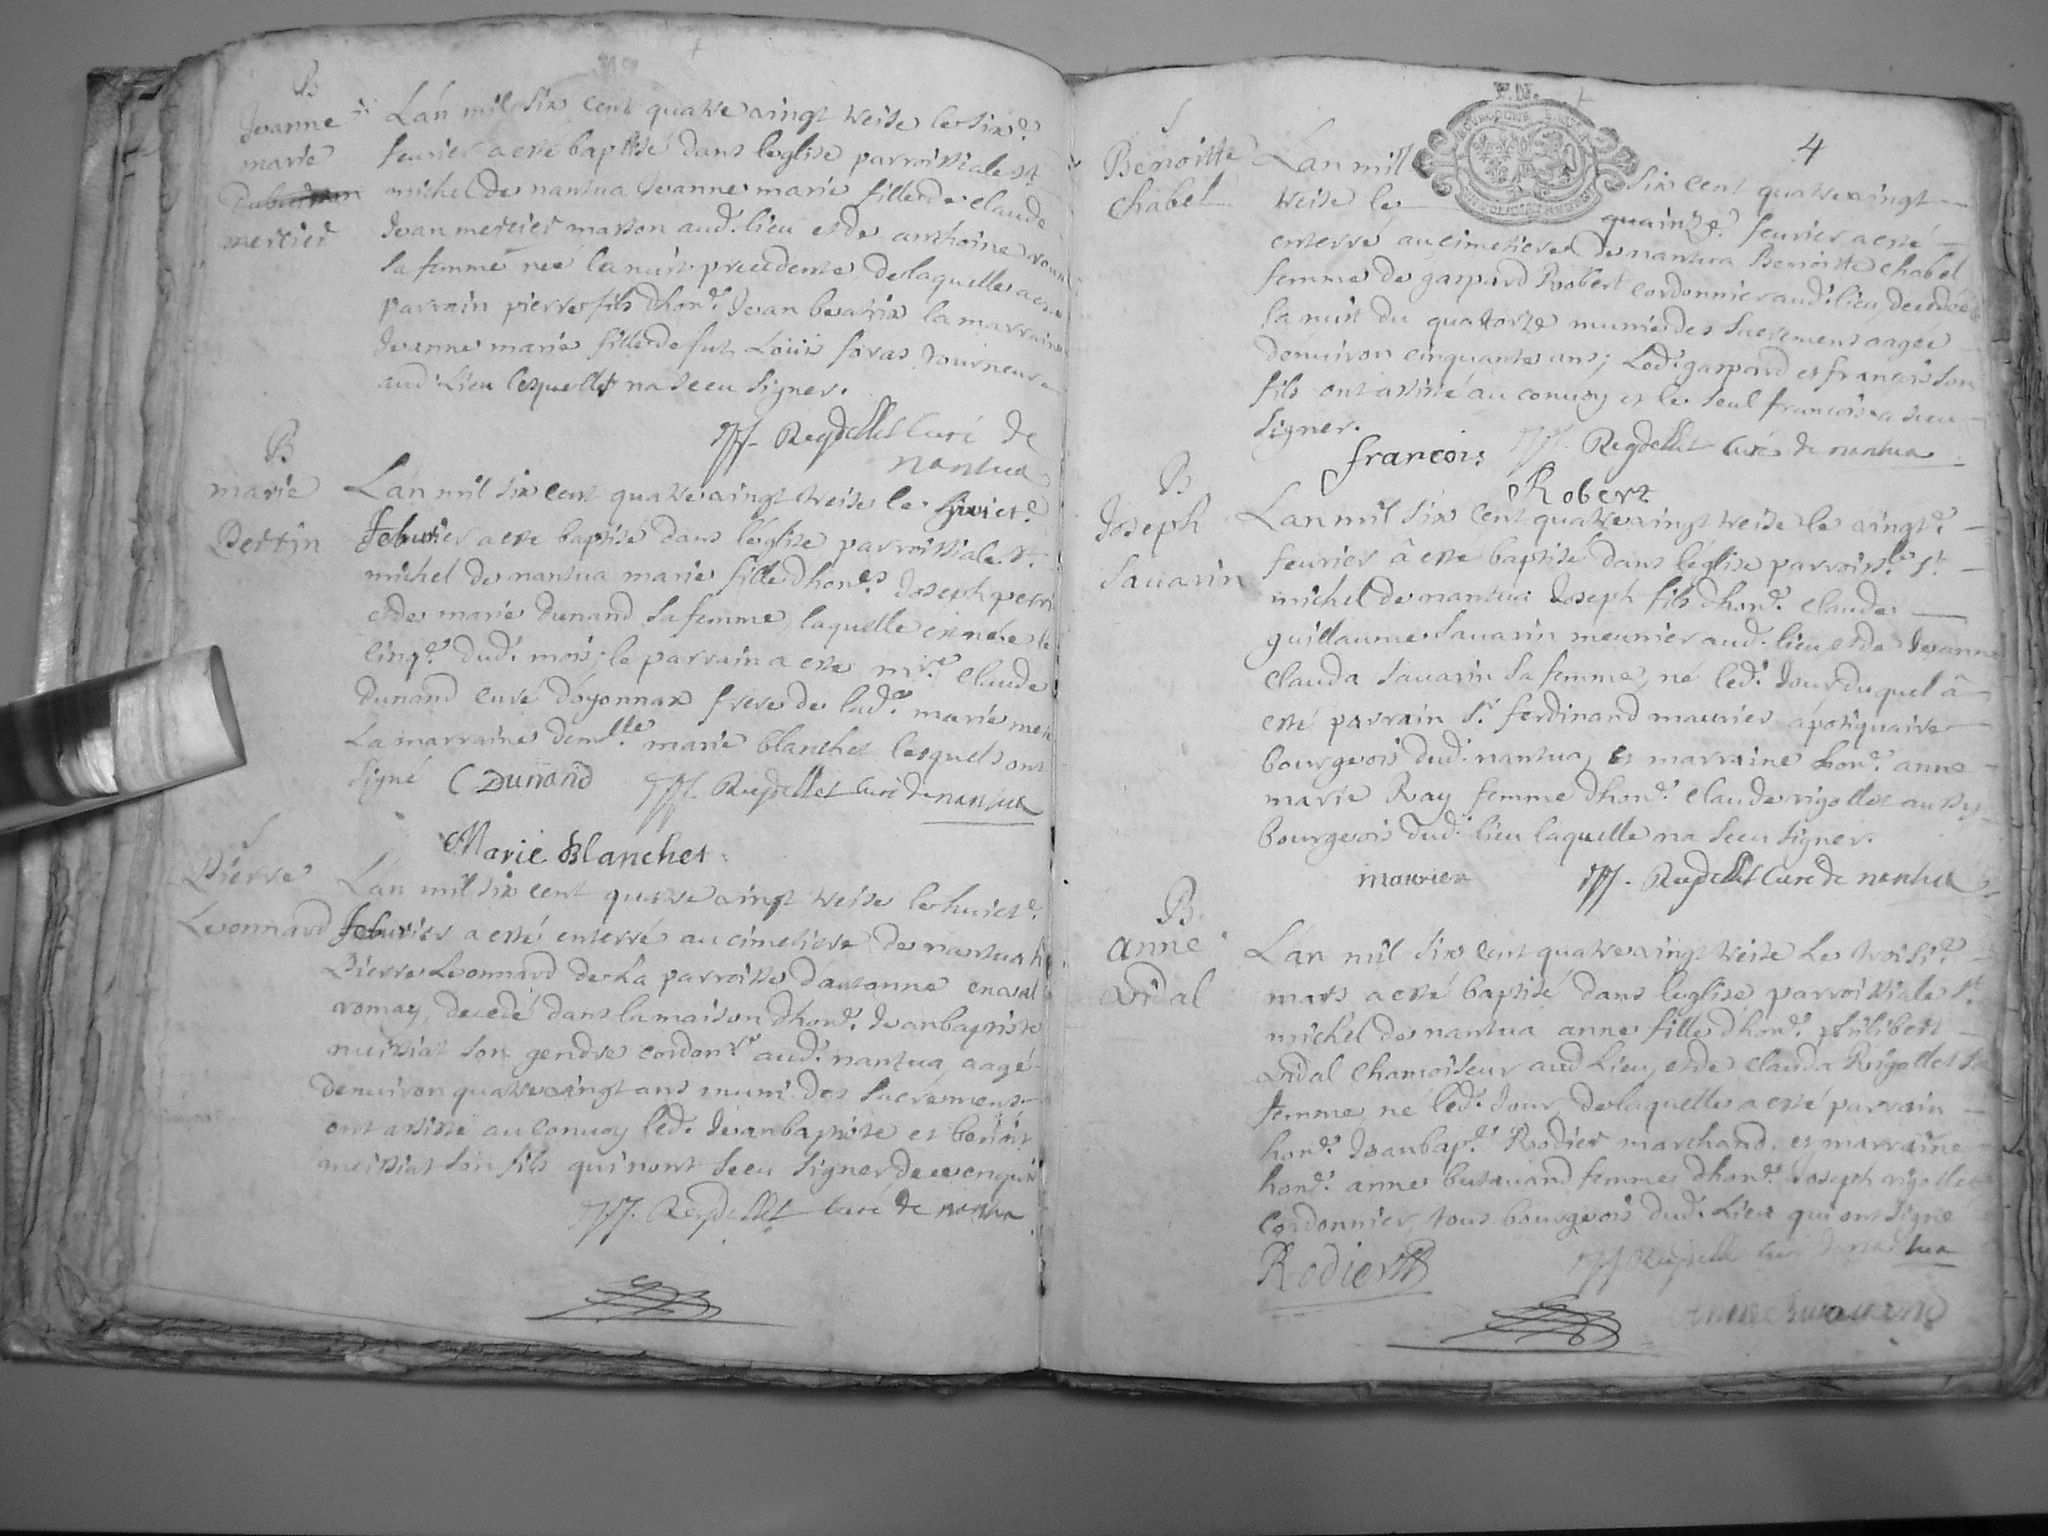 B
Jeanne
marie
mercier
Lan mil six cent quatre vingt treise le six.e
feurier a esté baptisé dans leglise parroissiale st.
michel de nantua Jeanne marie fille de claude
Jean mercier masson aud. lieu et de anthoine
sa femme née la nuit precedente de laquelle a esté
parrain pierre fils dhon.e Jean beatrix la marraine
Jeanne marie fille de fut Loüis foras Tourneur
aud. Lieu lesquells na sceu signer.
Reydellet Curé de
nantua
B
marie
Perrin
Lan mil six cent quatre vingt treise le huict.e
feburier a esté baptisé dans leglise parroissiale st.
michel de nantua marie fille dhon.es Joseph perrin
et de marie Dunand sa femme, laquelle est née le
cinq.e dud. mois; le parrain a esté m.re claude
Dunand curé doyonnax frere de lad.e marie
La marraine dem.lle marie blanchet lesquels ont
signé C Dunand Reydellet Curé de nantua
Marie Blanchet
S
Pierre
Leonnard
Lan mil six cent quatre vingt treise le huict.e
feburier a esté enterré au cimetiere de nantua
Pierre Leonnard de la parroisse dautonne en val
romay, decedé dans la maison dhon.e Jean baptiste
muissiat son gendre cordon.r aud. nantua, aagé
denuiron quatre vingt ans muni des sacremens
ont assisté au conuoy led. Jean baptiste et benoit
muissiat son fils qui nont sceu signer, de ce enquis
Reydellet Curé de nantua
4
S
Benoitte
Chabel
Lan mil six cent quatre vingt
treise le quainz.e feurier a esté
enterré au cimetiere de nantua Benoitte Chabel
femme de gaspard Robert cordonnier aud. lieu, decedée
la nuit du quatorze munie des sacremens aagée
denuiron cinquante ans; Led. gaspard et francois son
fils ont assisté au conuoy et le seul francois a sceu
signer.
Reydellet Curé de nantua
francois
Robert
B
Joseph
Sauarin
Lan mil six cent quatre vingt treise le vingt.e
feurier â esté baptisé dans leglise parroiss.le st.
michel de nantua Joseph fils dhon.e claude
guillaume Sauarin meunier aud. lieu et de Jeanne
Clauda Sauarin sa femme, né led. Jour duquel â
esté parrain s.r ferdinand maurier apotiquaire
bourgeois dud. nantua, et marraine hon.e anne
marie Ray femme dhon.e Claude rigollet aussy
bourgeois dud. lieu laquelle na sceu signer.
maurier Reydellet Curé de nantua
B.
anne
Vidal
Lan mil six cent quatre vingt treise Le troisi.e
mars a esté baptisé dans leglise parroissiale st.
michel de nantua anne fille dhon.e philibert
Vidal Chamoiseur aud Lieu, et de Clauda Rigollet sa
femme né led. Jour, de laquelle a esté parrain
hon.e Jean bap.e Rodier marchand, et marraine
hon.e anne butauand femme dhon.e Joseph rigollet
cordonnier, tous bourgeois dud. Lieu qui ont signé
Rodier Reydellet Curé de nantua